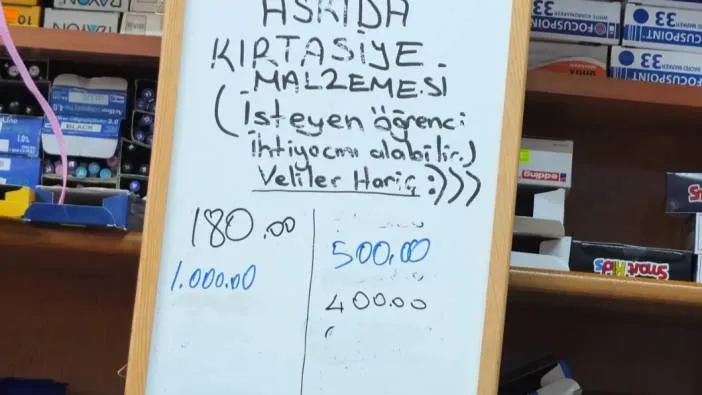 ASKIDA
KIRTASİYE
MALZEMESİ
(İsteyen öğrenci
ihtiyacını alabilir.)
Veliler Hariç :)))
180.00
1.000.00
500.00
400.00
FOCUSPOINT 33
FOCUSPOINT 33
edding
Smart Kids
BLACK